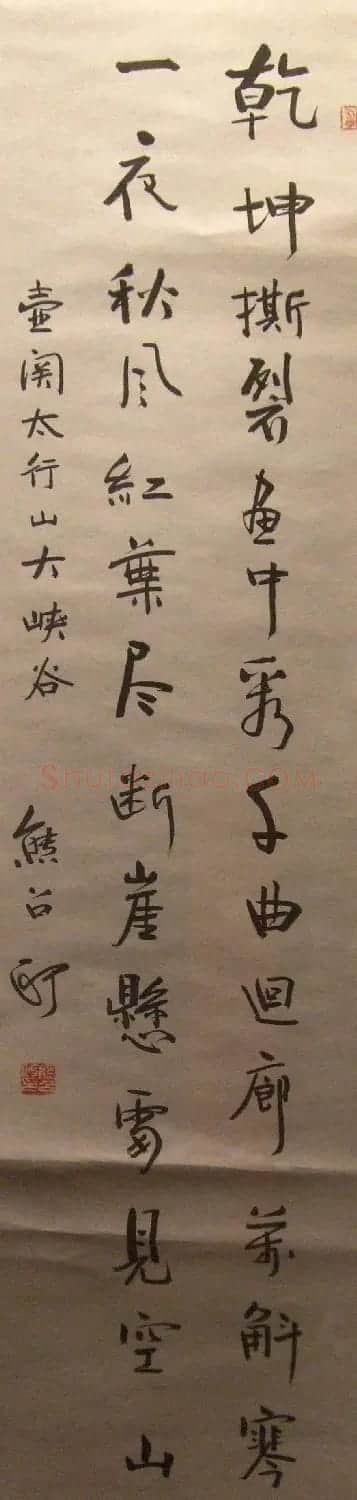 乾坤撕裂画中看千曲迴廊萬斛寒
一夜秋风紅葉尽断崖懸見空山
壺関太行山大峡谷 熊召政